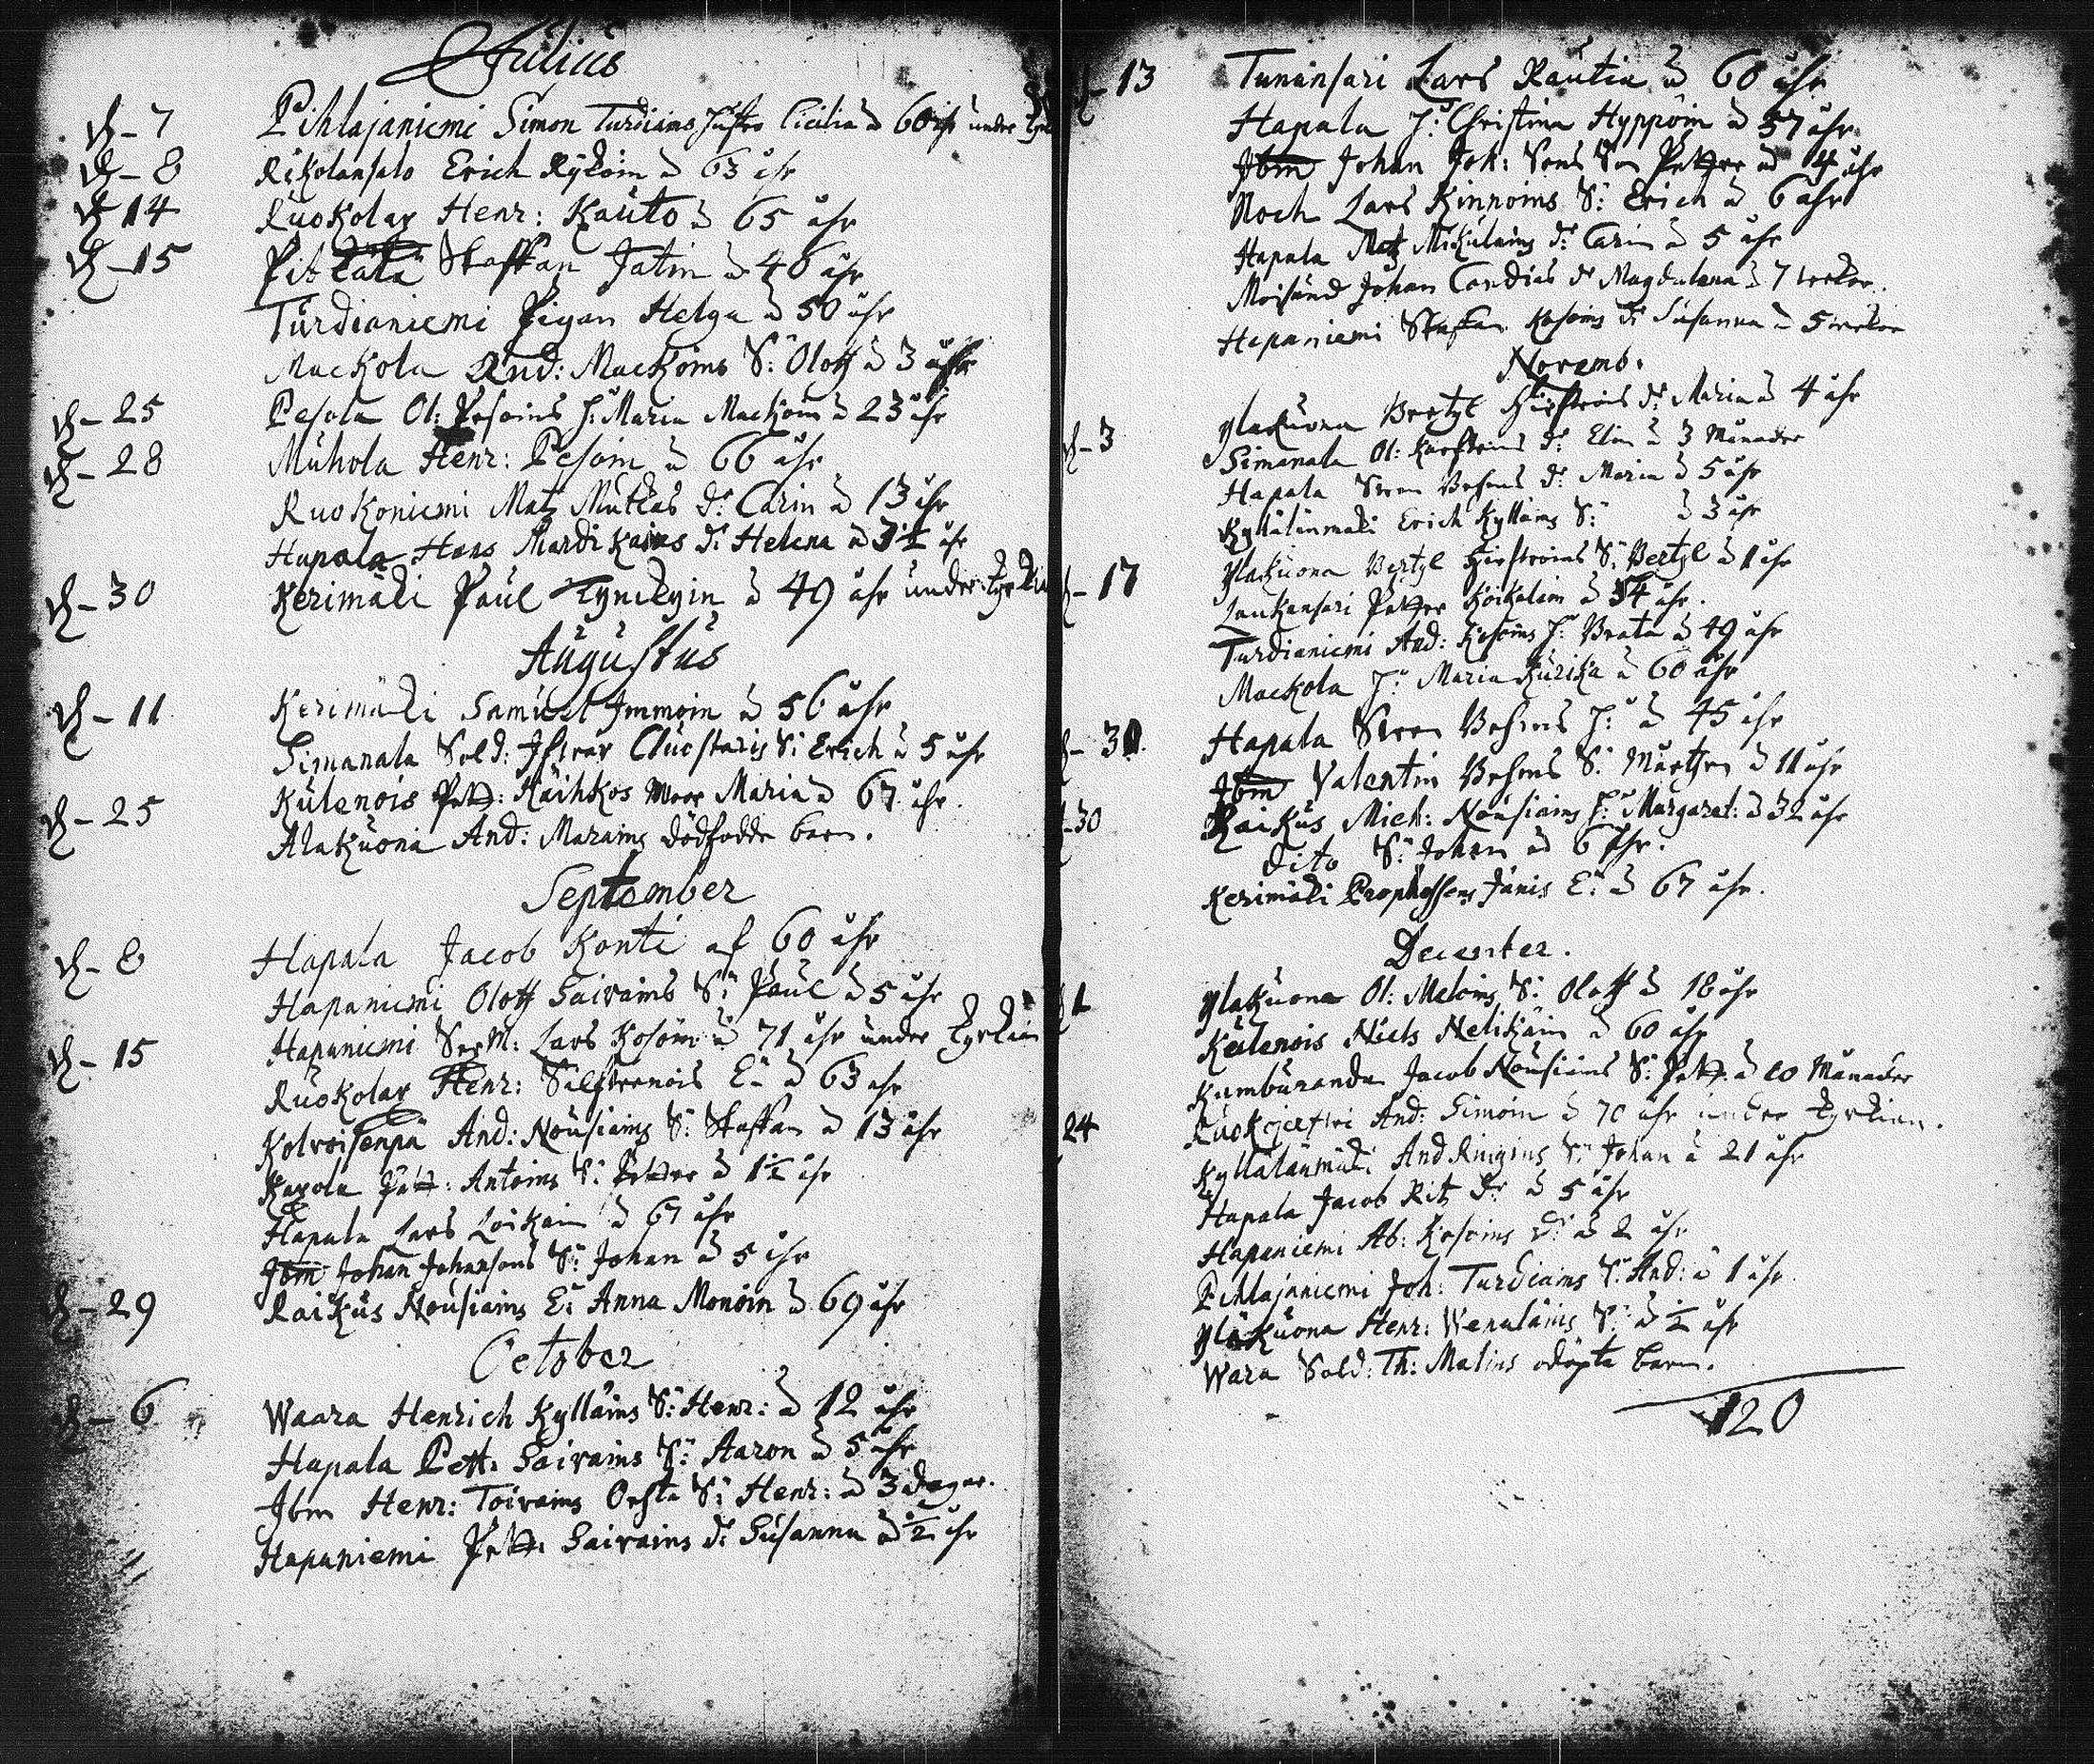 Julius
d. 7 Pihlajaniemi Simon Turdiains hustro Cicilia à 60 åhr under
d. 8 Rikolansalo Erich Rÿköin à 63 åhr
d. 14 Ruokolax Henr: Kauto à 65 åhr
d. 15 Staffan Jatin à 46 åhr
Turdianiemi Pigan Helga à 50 åhr
Mackola And: Mackoins S: Oloff à 3 åhr
d. 25 Pesola Ol: Pesoins H: Maria Mackoin à 23 åhr
d. 28 Muhola Henr: Pesoin à 66 åhr
Ruokoniemi Matz Mutkas d: Carin à 13 åhr
Hapala Hans Mardikains d: Helena à 3½ åhr
d. 30 Kerimäki Paul Tynckyin à 49 åhr under kyrckia
Augustus
d. 11 Kerimäki Samuel Immoin à 56 åhr
Simanala Sold: S: Erich à 5 åhr
Kulenois Pett: Käihkos Moor Maria à 67 åhr.
d. 25 Alakuona And: Marains dödfödde barn.
September
d. 8 Hapala Jacob Konti af 60 åhr
Hapaniemi Oloff Sairains S: Paul à 5 åhr
Hapaniemi Lars Kosoin à 71 åhr under kyrkian
d. 15 Ruokolax Henr: E: à 63 åhr
Kolvoisenpä And: Nousiains S: Staffan à 13 åhr
Pett: Antoins S: Petter à 1½ åhr
Hapala Lars Loikain à 67 åhr
Ibm Johan Johansons S: Johan à 5 åhr
d. 29 Raikus Nousiains E: Anna Monoin à 69 åhr
October
d. 6 Waara Henrich Kylläins S: Henr: à 12 åhr
Hapala Pett. Sairains S: Aaron à 5 åhr
Ibm Henr: Toivains S: Henr: à 3 dagar.
Hapaniemi Pett. Sairains d: Susanna à ½ åhr
d. 13 Tunansari Lars Rautia à 60 åhr
Hapala H: Christina Hyppöin à 37 åhr.
Ibm Johan Joh: Sons Son Petter à 4 åhr
Noch Lars Kinnoins S: Erich à 6 åhr
Hapala Matz Mikulains d: Carin à 5 åhr
Moisund Johan d: Magdalena à 7 weckor.
Hapaniemi Staffan Kosoins d: Susanna à 5 weckor
Novemb.
Ylakuona Bertzl d: Maria à 4 åhr
d. 3 Simanala Ol: d: Elin à 3 Månader
Hapala Sven d: Maria à 5 åhr
Kyllälänmäki Erich Kylläins S: à 3 åhr
Ylakuona Bertzl S: Bertzl à 1 åhr
d. 17 Laukansari Petter Köikalain à 54 åhr.
Turdianiemi And: Kosoins H: Brata à 49 åhr
Mackola H: Maria Kurika à 60 åhr
d. 30. Hapala Sven H: à 45 åhr
Ibm Valentin S: Mårthen à 11 åhr
d. 30 Raikus Mich: Nousiains H: Margaret: à 32 åhr
dito S: Johan à 6 åhr.
Kerimäki E: à 67 åhr.
December.
Ylakuona Ol: Meloins S: Oloff à 18 åhr
Kulenois Niels Nelikäin à 60 åhr
Kumburanda Jacob Nousiains S: Pett. à 10 Månader
24 And: Simoin à 70 åhr under kyrkian.
Kyllälänmäki And S: Johan à 21 åhr
Hapala Jacob Ritz d: à 5 åhr
Hapaniemi Ab: Kosoins d: à 2 åhr
Pihlajaniemi Joh: Turdiains S: And: à 1 åhr
Ylakuona Henr: Wenäläins S: à ½ åhr
Wara Sold: Th: Malins odöpta barn.
120